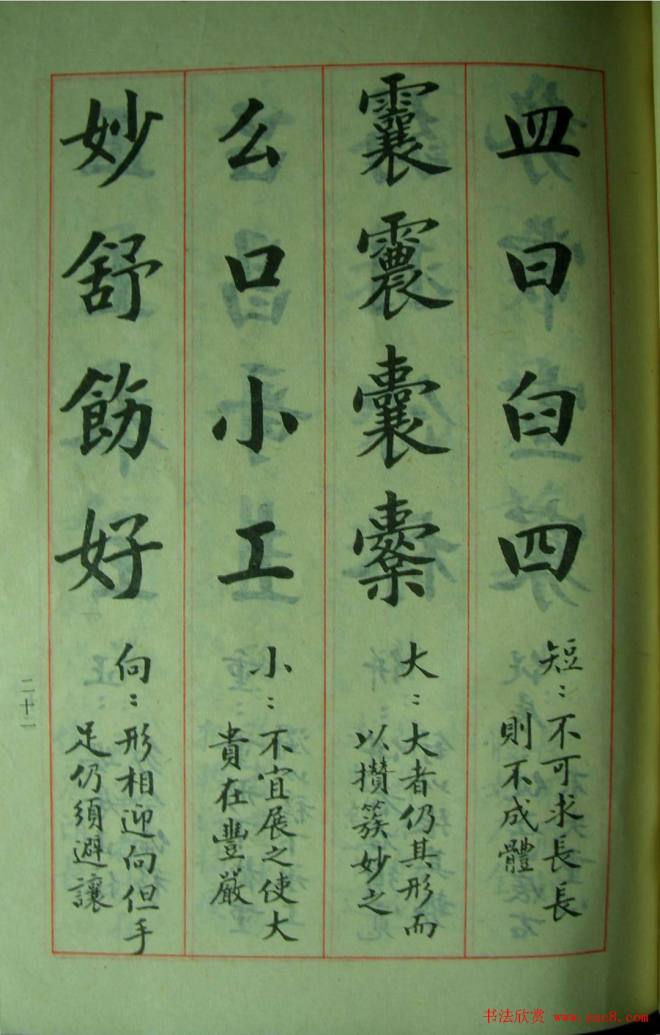 皿曰白四
短：不可求長長
則不成體
囊
大：大者仍其形而
以攢簇妙之
么口小工
小：不宜展之使大
貴在豐嚴
妙舒飭好
向：形相迎向但手
足仍須避讓
二十一
书法欣赏 www.yac8.com